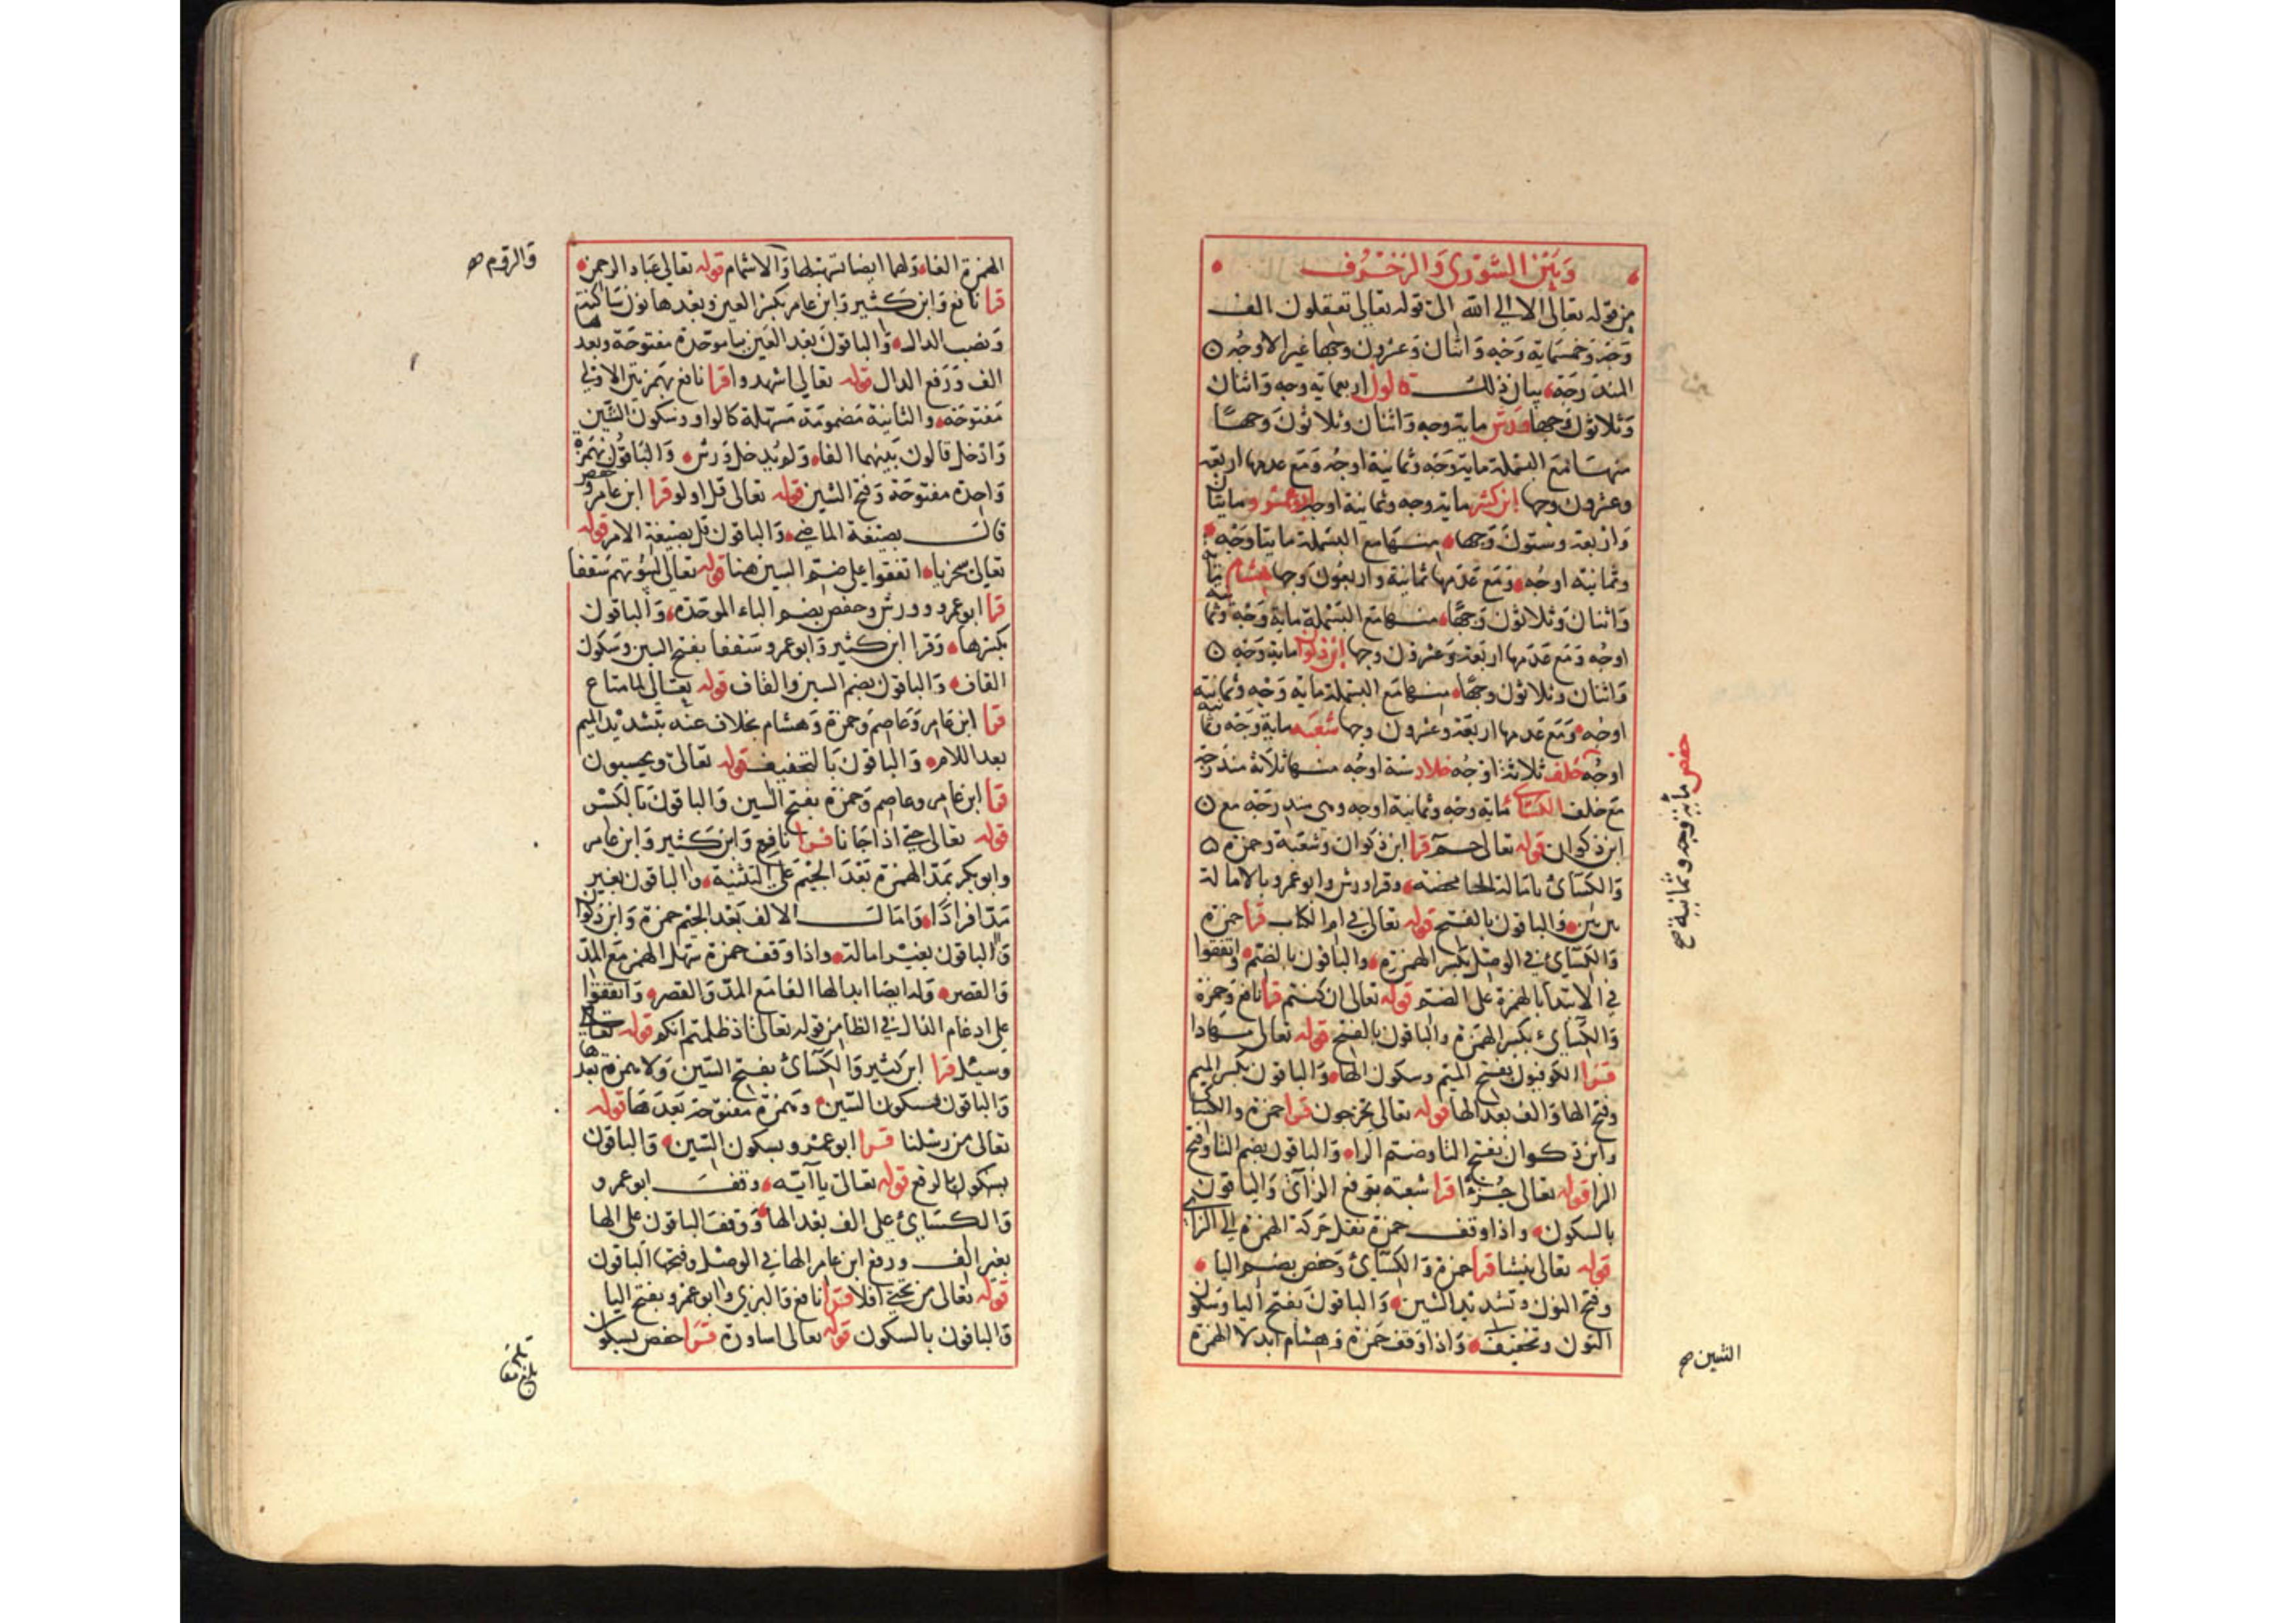 وبين الشورى والزخرف
من قوله تعالى الا الى الله الى قوله تعالى تعقلون الف
وجه وخمسماية وجه واثنان وعشرون وجها غير الاوجه
المندرجة بيان ذلك قالون اربعماية وجه واثنان
وثلاثون وجها ورش ماية وجه واثنان وثلاثون وجها
منها مع البسملة ماية وجه وثمانية اوجه ومع عدمها اربعة
وعشرون وجها ابن كثير ماية وجه وثمانية اوجه ابو عمرو مايتان
واربعة وستون وجها منها مع البسملة مايتا وجه
وثمانية اوجه ومع عدمها ثمانية واربعون وجها هشام
واثنان وثلاثون وجها منها مع البسملة ماية وجه وثمانية
اوجه ومع عدمها اربعة وعشرون وجها ابن ذكوان ماية وجه
واثنان وثلاثون وجها منها مع البسملة ماية وجه وثمانية
اوجه ومع عدمها اربعة وعشرون وجها شعبة ماية وجه وثمانية
اوجه خلف ثلاثة اوجه خلاد ستة اوجه منها ثلاثة مندرجة
مع خلف الكسائي ماية وجه وثمانية اوجه وهي مندرجة مع
ابن ذكوان قوله تعالى حم قرا ابن ذكوان وشعبة وحمزة
والكسائي بامالة الحا محضة وقرا ورش وابو عمرو بالامالة
بين بين والباقون بالفتح قوله تعالى في ام الكتاب قرا حمزة
والكسائي في الوصل بكسر الهمزة والباقون بالضم واتفقوا
في الابتدا بالهمزة على الضم قوله تعالى ان كنتم قرا نافع وحمزة
والكسائي بكسر الهمزة والباقون بالفتح قوله تعالى مهادا
قرا الكوفيون بفتح الميم وسكون الها والباقون بكسر الميم
وفتح الها والف بعد الها قوله تعالى تخرجون قرا حمزة والكسائي
وابن ذكوان بفتح التا وضم الرا والباقون بضم التا وفتح
الرا قوله تعالى جزءا قرا شعبة برفع الزاي والباقون
بالسكون واذا وقف حمزة نقل حركة الهمزة الى الزاي
قوله تعالى ينشا قرا حمزة والكسائي وحفص بضم اليا
وفتح النون وتشديد الشين والباقون بفتح اليا وسكون
النون وتخفيف واذا وقف حمزة وهشام ابدلا الهمزة
حفص مائة وجه وثمانية صح
الشين صح
الهمزة الفا ولهما ايضا تسهيلها والاشمام قوله تعالى عباد الرحمن
قرا نافع وابن كثير وابن عامر بكسر العين وبعدها نون ساكنة
ونصب الدال والباقون بعد العين بباء موحدة مفتوحة وبعدها
الف ورفع الدال قوله تعالى اشهدوا قرا نافع بهمزتين الاولى
مفتوحة والثانية مضمومة مسهلة كالواو وسكون الشين
وادخل قالون بينهما الفا ولم يدخل ورش والباقون بهمزة
واحدة مفتوحة وفتح الشين قوله تعالى قل اولو قرا ابن عامر وحفص
قال بصيغة الماضي والباقون قل بصيغة الامر قوله
تعالى سخريا اتفقوا على ضم السين هنا قوله تعالى لبيوتهم سقفا
قرا ابو عمرو وورش وحفص بضم الباء الموحدة والباقون
بكسرها وقرا ابن كثير وابو عمرو سقفا بفتح السين وسكون
القاف والباقون بضم السين والقاف قوله تعالى لما متاع
قرا ابن عامر وعاصم وحمزة وهشام بخلاف عنه بتشديد الميم
بعد اللام والباقون بالتخفيف قوله تعالى ويحسبون
قرا ابن عامر وعاصم وحمزة بفتح السين والباقون بالكسر
قوله تعالى حتى اذا جانا قرا نافع وابن كثير وابن عامر
وابو بكر بمد الهمزة بعد الجيم على التثنية والباقون بغير
مد افرادا وامال الالف بعد الجيم حمزة وابن ذكوان
والباقون بغير امالة واذا وقف حمزة سهل الهمز مع المد
والقصر وله ايضا ابدالها الفا مع المد والقصر واتفقوا
على ادغام الذال في الظا من قوله تعالى اذ ظلمتم انكم قوله تعالى
وسئل قرا ابن كثير والكسائي بفتح السين ولا همزة بعدها
والباقون بسكون السين وهمزة مفتوحة بعدها قوله
تعالى من رسلنا قرا ابو عمرو بسكون السين والباقون
بسكون بالرفع قوله تعالى يا آيه وقف ابو عمرو
والكسائي على الف بعد الها ووقف الباقون على الها
بغير الف ورفع ابن عامر الها في الوصل وفتحها الباقون
قوله تعالى من تحتي افلا قرا نافع والبزي وابو عمرو بفتح اليا
والباقون بالسكون قوله تعالى اساورة قرا حفص بسكون
والروم صح
بلغ